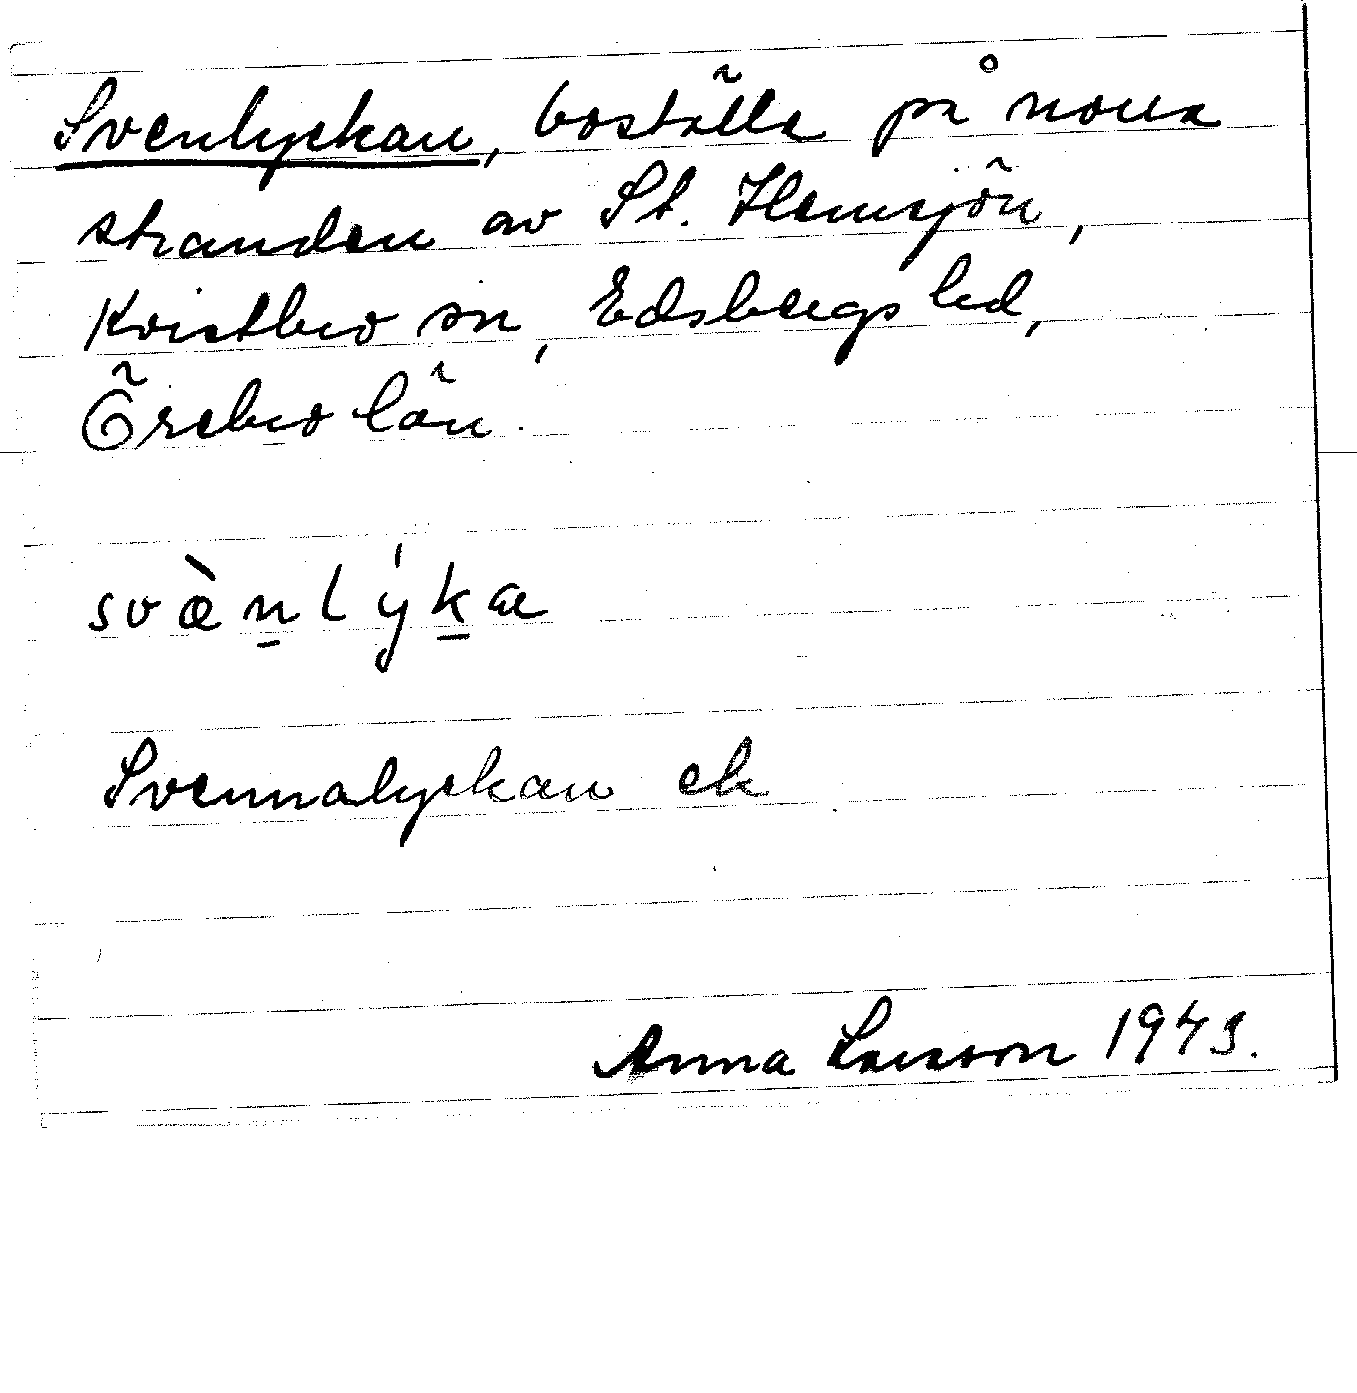 Svenlyckan, boställe på norra
stranden av St. Hemsjön,
Kvistbro sn, Edsbergs hd,
Örebro län.
svæ̀n̠lýk̠a
Svennalyckan ek
Anna Larsson 1943.